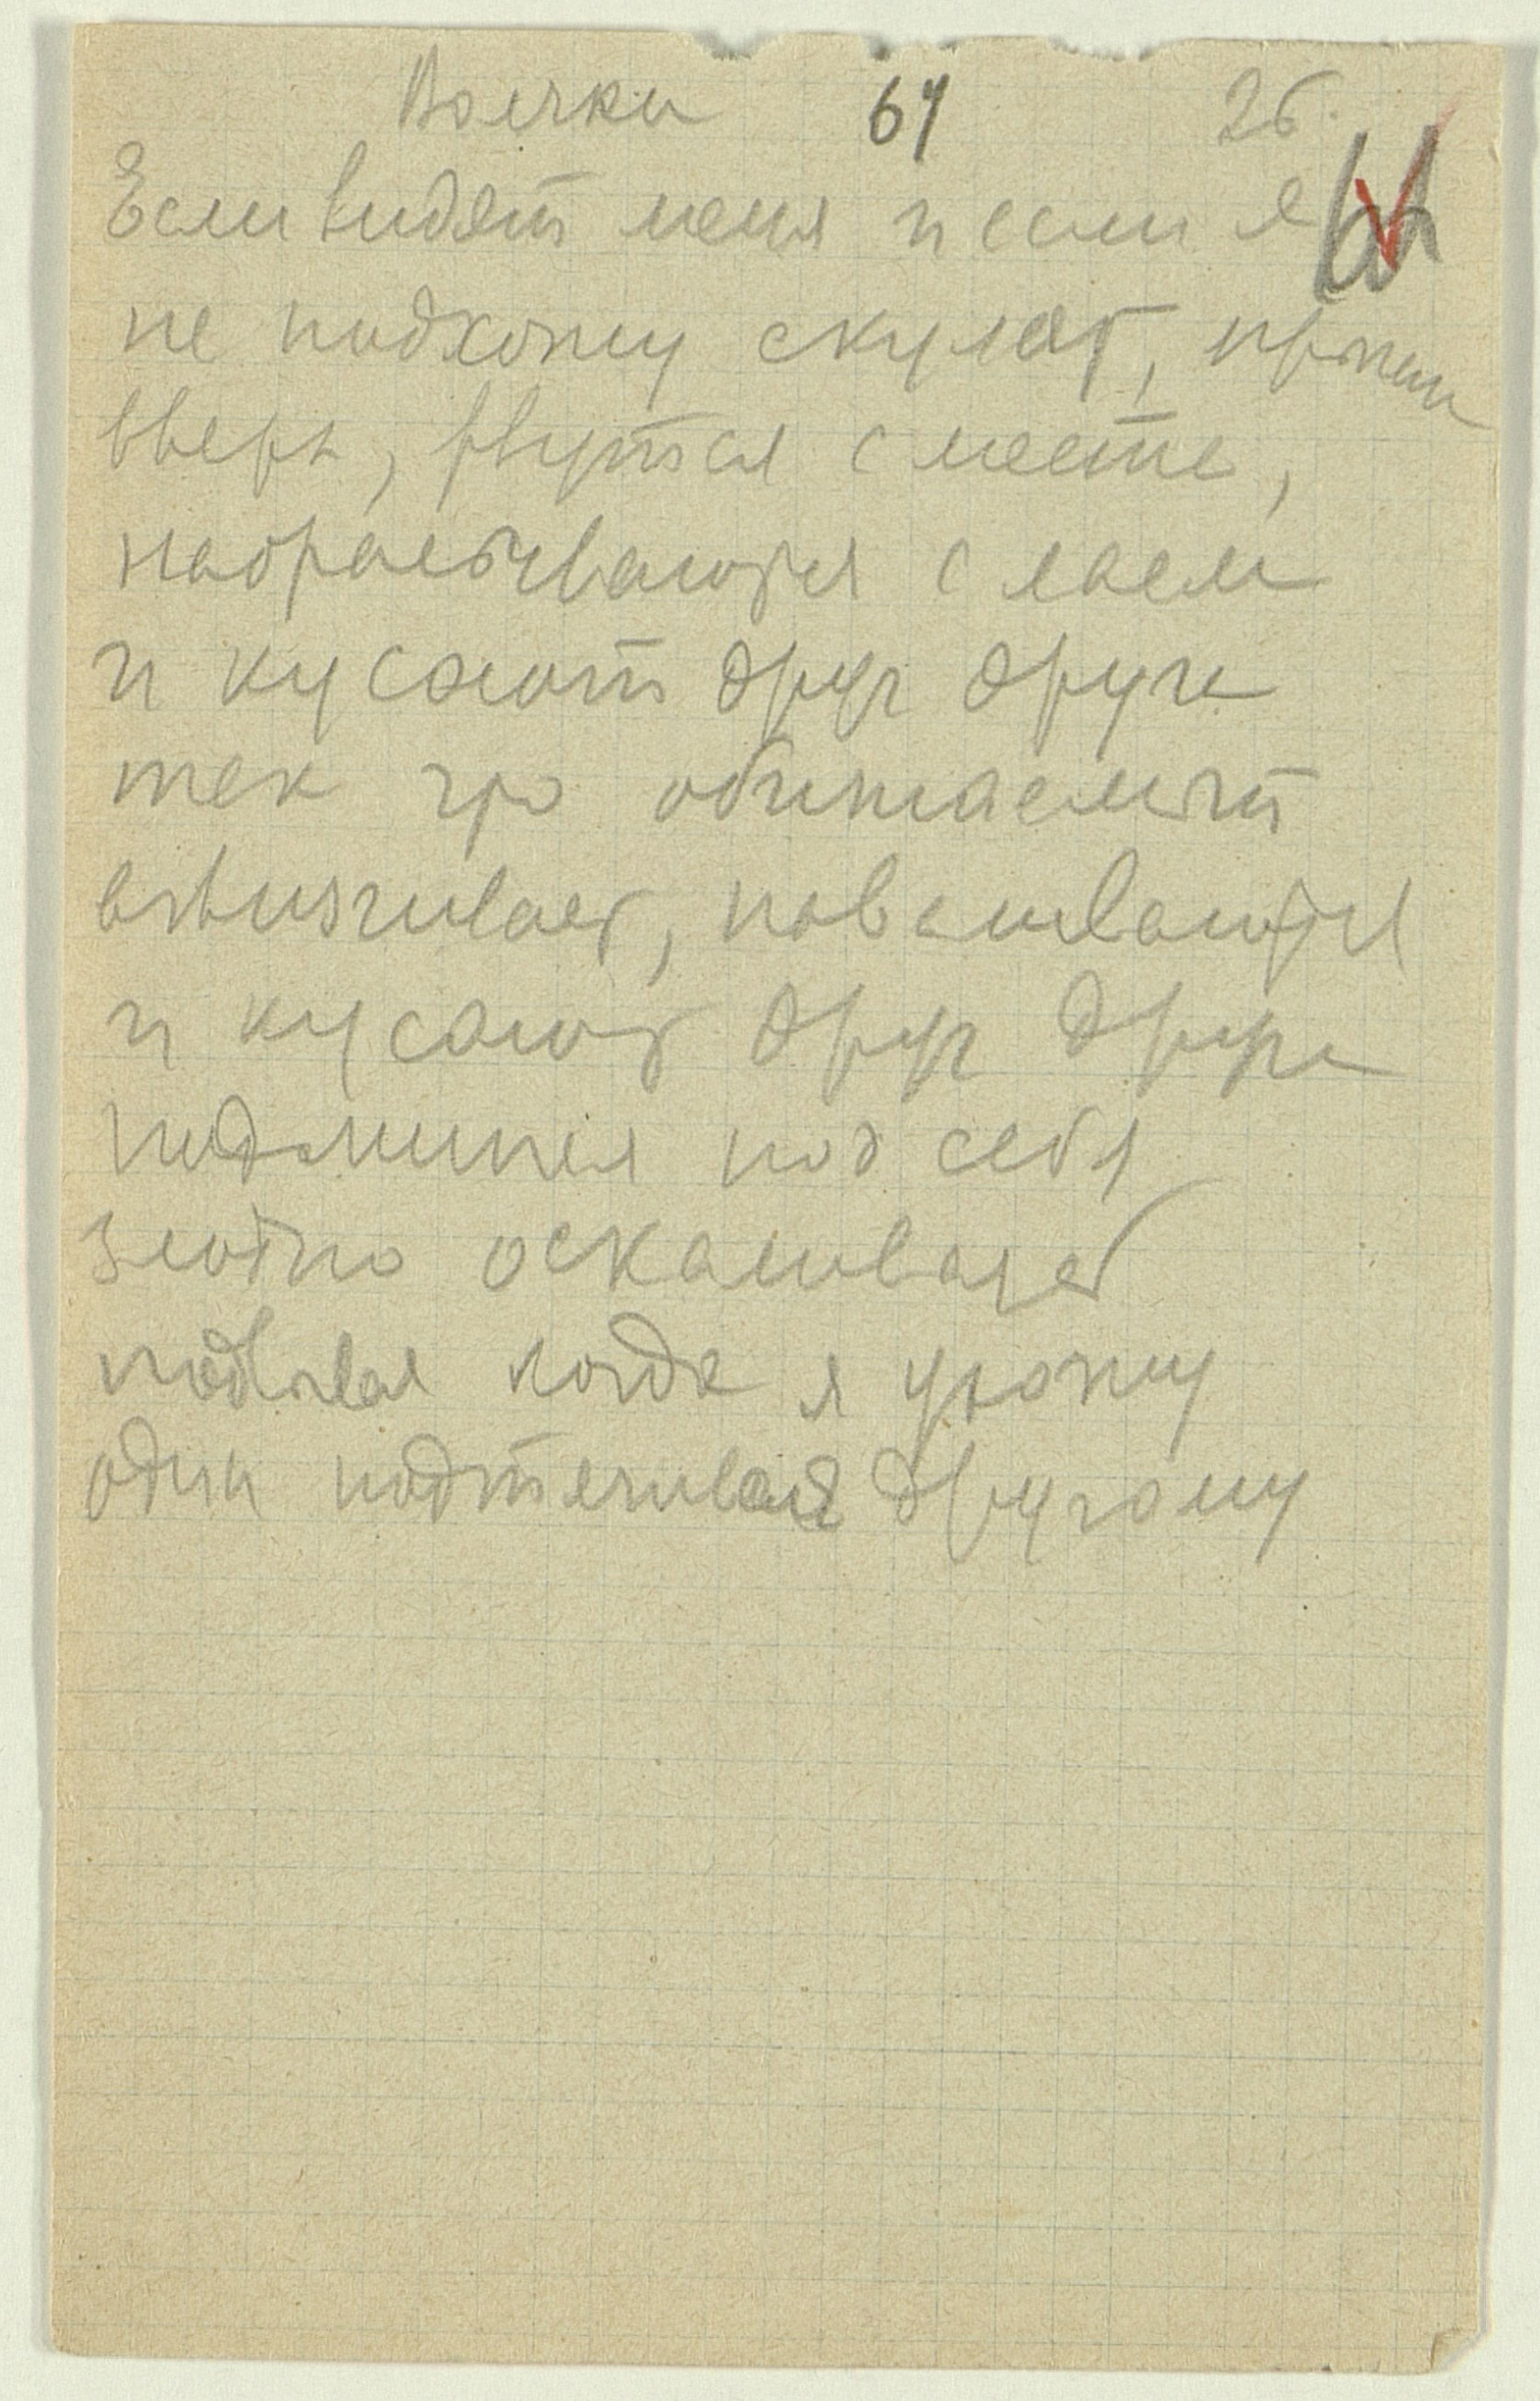 Волчки 61 26.
Если видят меня и если я
не подхожу скулят, прыжки
вверх, рвутся с места,
набрасываются с лаем
и кусают друг друга
так что обижаемый
взвизгивает, наваливаются
и кусают друг друга
подминая под себя
злобно оскаливает
подвывая когда я ухожу
один подтягивая другому